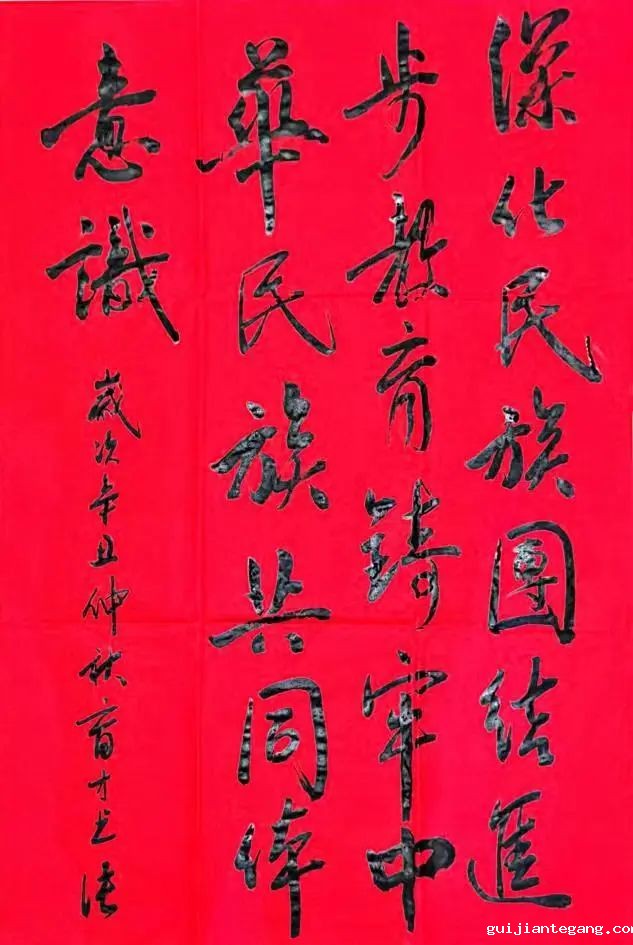 深化民族團結進
步教育鑄牢中
華民族共同体
意識
歲次辛丑仲秋育才
guijiantegang.com